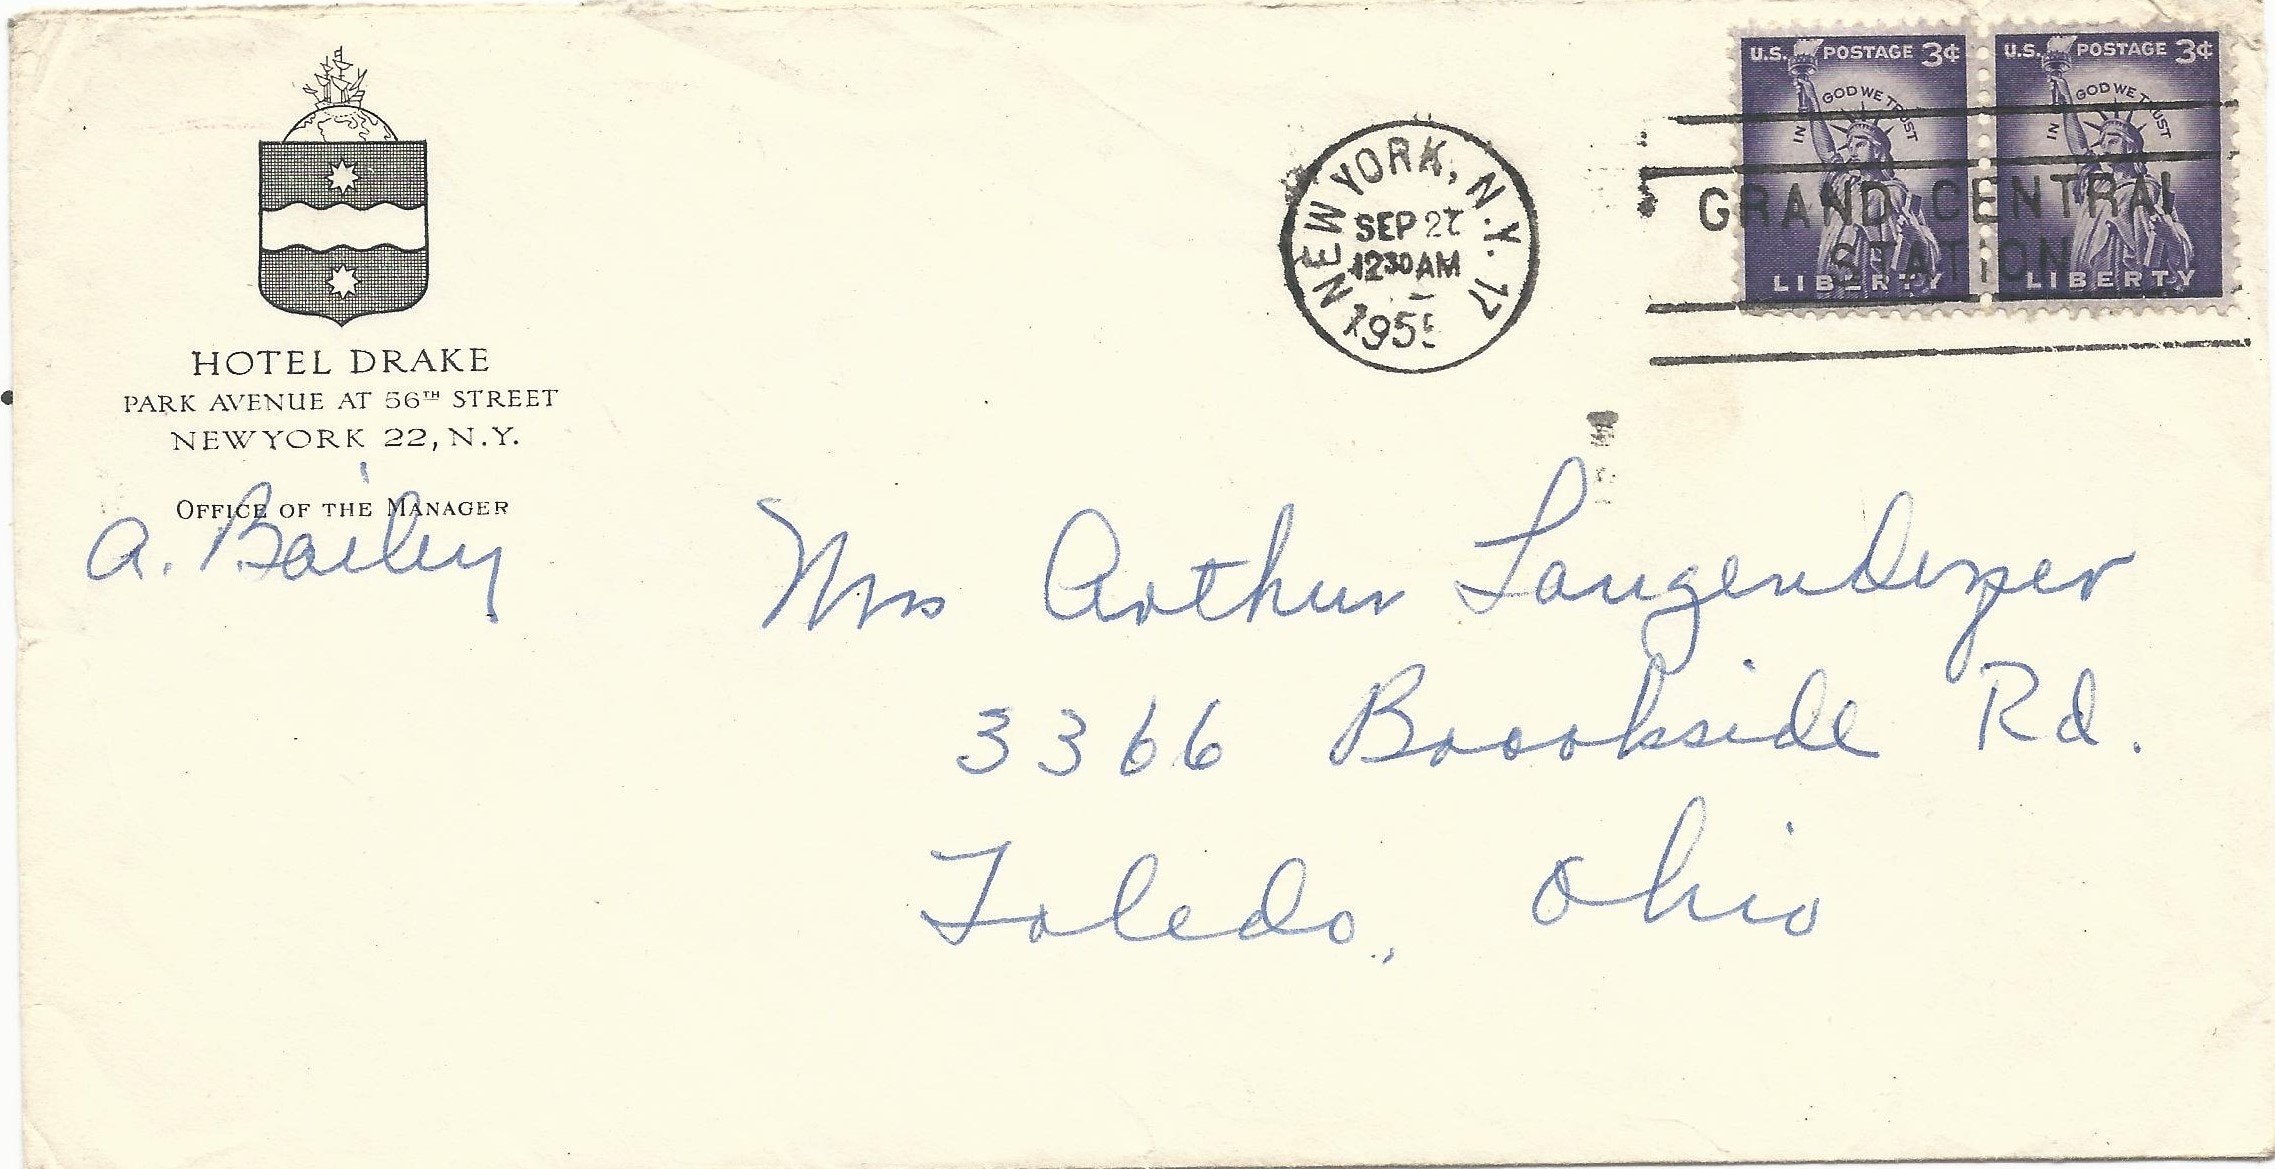 HOTEL DRAKE
PARK AVENUE AT 56TH STREET
NEW YORK 22, N.Y.
OFFICE OF THE MANAGER
A. Bailey
NEW YORK, N.Y. 17
SEP
12 30 AM
1955
U.S. POSTAGE 3¢
IN GOD WE TRUST
LIBERTY
U.S. POSTAGE 3¢
IN GOD WE TRUST
LIBERTY
GRAND CENTRAL
STATION
Mrs Arthur Langenderfer
3366 Brookside Rd.
Toledo, Ohio